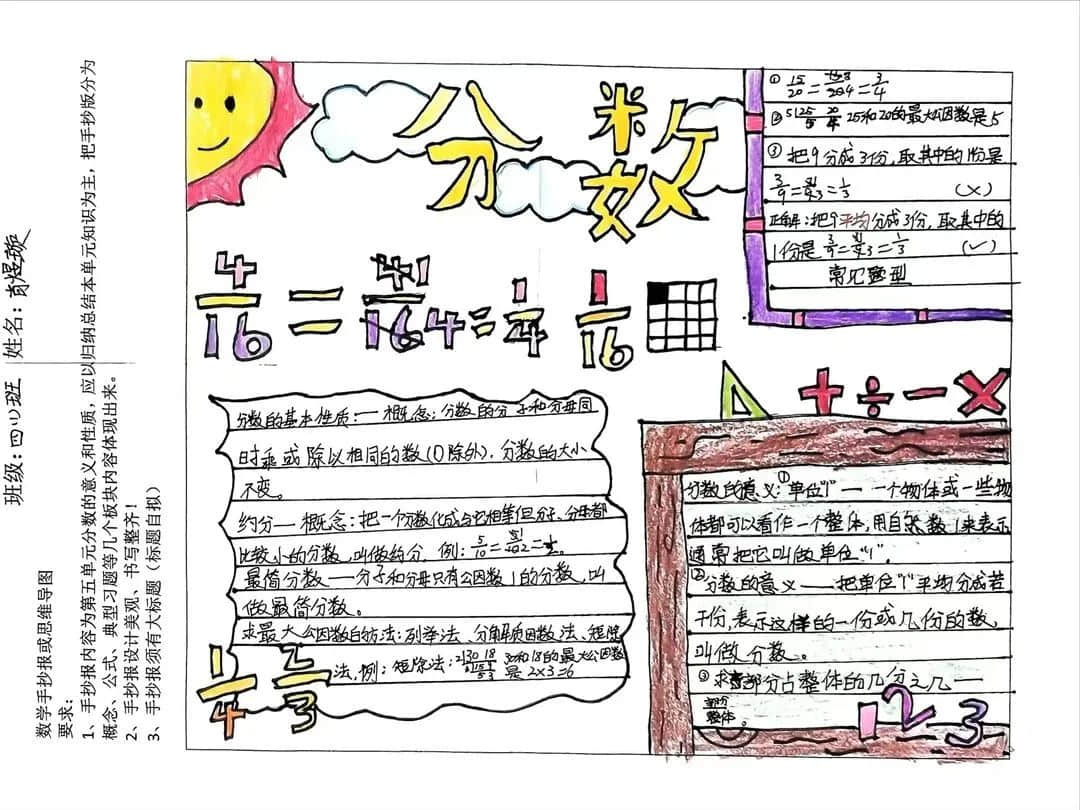 数学手抄报或思维导图
要求:
1、手抄报内容为第五单元分数的意义和性质，应以归纳总结本单元知识为主，把手抄版分为
概念、公式、典型习题等几个板块内容体现出来。
2、手抄报设计美观、书写整齐！
3、手抄报须有大标题（标题自拟）
班级：四(1)班 姓名：肖煜璇
分数
① 15/20 = 15÷5/20÷4 = 3/4
② 25和20的最大公因数是5
③ 把9分成3份，取其中的1份是
3/9 = = 1/3 (×)
正解：把9平均分成3份，取其中的
1份是 3/9 = = 1/3 (✓)
常见题型
4/16 = = 1/4 1/16
+ ÷ − ×
分数的基本性质：— 概念：分数的分子和分母同
时乘或除以相同的数(0除外)，分数的大小
不变。
约分— 概念：把一个分数化成与它相等但分子、分母都
比较小的分数，叫做约分，例：5/10 = = 1/2。
最简分数——分子和分母只有公因数1的分数，叫
做最简分数。
求最大公因数的方法：列举法、分解质因数法、短除
法，例：短除法： 30和18的最大公因数
是2×3=6
1/4 2/3
分数的意义：①单位"1"—— 一个物体或一些物
体都可以看作一个整体，用自然数1来表示
通常把它叫做单位"1"。
②分数的意义——把单位"1"平均分成若
干份，表示这样的一份或几份的数，
叫做分数。
③求部分占整体的几分之几—
部分/整体。
1 2 3